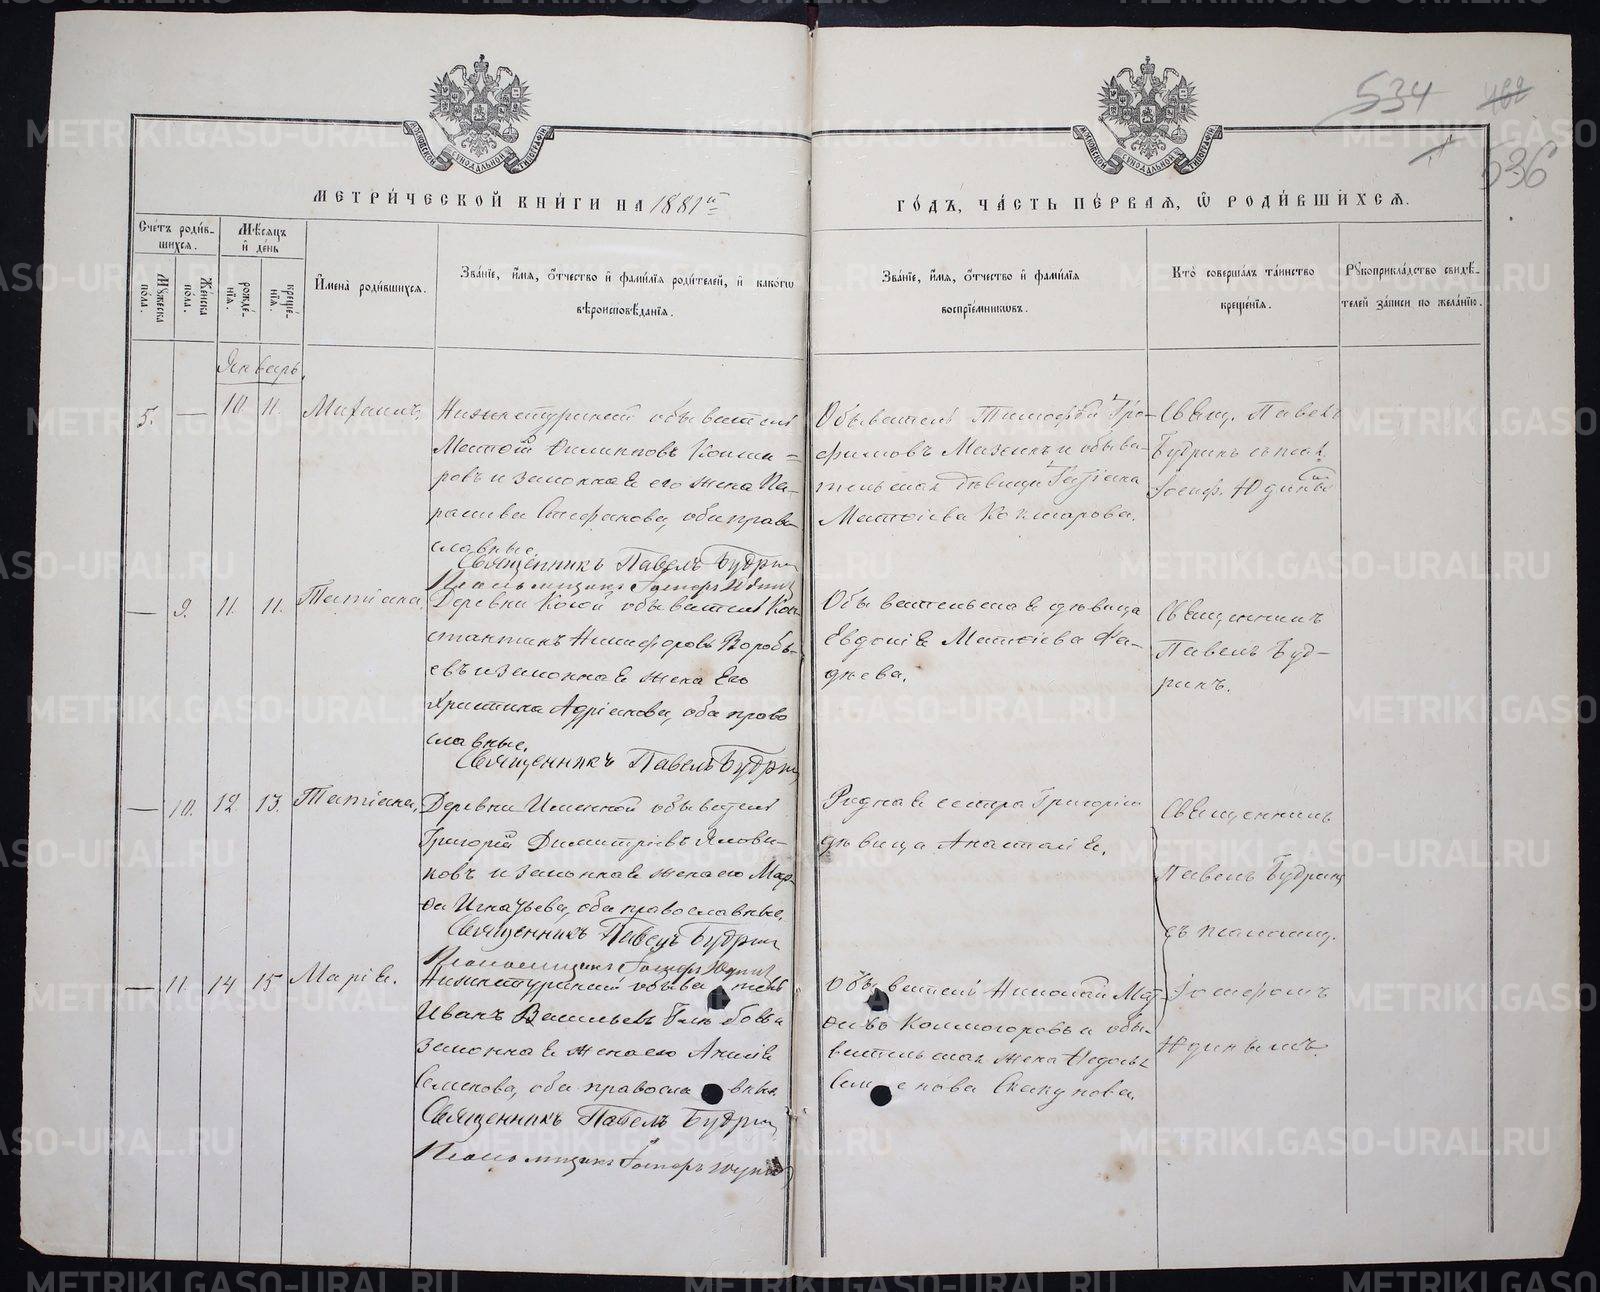 534
536
МОСКОВСКОЙ СѴНОДАЛЬНОЙ ТИПОГРАФІИ
МОСКОВСКОЙ СѴНОДАЛЬНОЙ ТИПОГРАФІИ
МЕТРИ́ЧЕСКОЙ КНИ́ГИ НА 1881й
ГО́ДЪ, ЧА́СТЬ ПЕ́РВАЯ, Ѡ РОДИ́ВШИХСЯ.
Сче́тъ роди́в-
шихся.
Мѣ́сяцъ
и҆ де́нь
Му́жеска
по́ла.
Же́нска
по́ла.
рожде́-
нїя.
креще́-
нїя.
И҆мена̀ роди́вшихся.
Зва́нїе, и҆́мя, ѻ҆́тчество и҆ фами́лїя роди́телей, и҆ како́гѡ
вѣроисповѣ́данїя.
Зва́нїе, и҆́мя, ѻ҆́тчество и҆ фами́лїя
воспрїе́мниковъ.
Кто̀ соверша́лъ та́инство
креще́нїя.
Рꙋкоприкла́дство свидѣ́-
телей за́писи по жела́нїю.
Январь.
5. — 10. 11. Михаилъ,
Нижнетуринскій обыватель
Матѳій Филиповъ Кокша-
ровъ и законная его жена Па-
раскева Стефанова, оба право-
славные.
Священникъ Павелъ Будрин
Псаломщикъ Іосифъ Юдинъ
Обыватель Тимофей Тро-
фимовъ Мазеинъ и обыва-
тельская дѣвица Татіана
Матѳіева Кокшарова.
Свящ. Павелъ
Будринъ съ псал.
Іосиф. Юдинымъ
— 9. 11. 11. Татіана,
Деревни Косой обыватель Кон-
стантинъ Никифоровъ Воробь-
евъ и законная жена его
Христина Адріанова, оба право
славные.
Священникъ Павелъ Будрин
Обывательская дѣвица
Евдокія Матѳіева Фа-
дѣева.
Священникъ
Павелъ Буд-
ринъ.
— 10. 12 13. Татіана,
Деревни Именной обыватель
Григорій Димитріевъ Ялови-
ковъ и законная жена его Мар-
ѳа Игнатьева, оба православные.
Священникъ Павелъ Будрин
Псаломщикъ Іосифъ Юдинъ
Родная сестра Григорія
дѣвица Анастасія.
Священникъ
Павелъ Будринъ
съ псаломщ.
Іосифомъ
Юдинымъ.
— 11. 14 15 Марія.
Нижнетуринскій обыватель
Иванъ Васильевъ Глѣбовъ и
законная жена его Анисія
Семенова, оба православные.
Священникъ Павелъ Будрин
Псаломщикъ Іосифъ Юдинъ
Обыватель Николай Мат-
ѳіевъ Колмогоровъ и обы-
вательская жена Ѳедосья
Семенова Скакунова.
METRIKI.GASO-URAL.RU